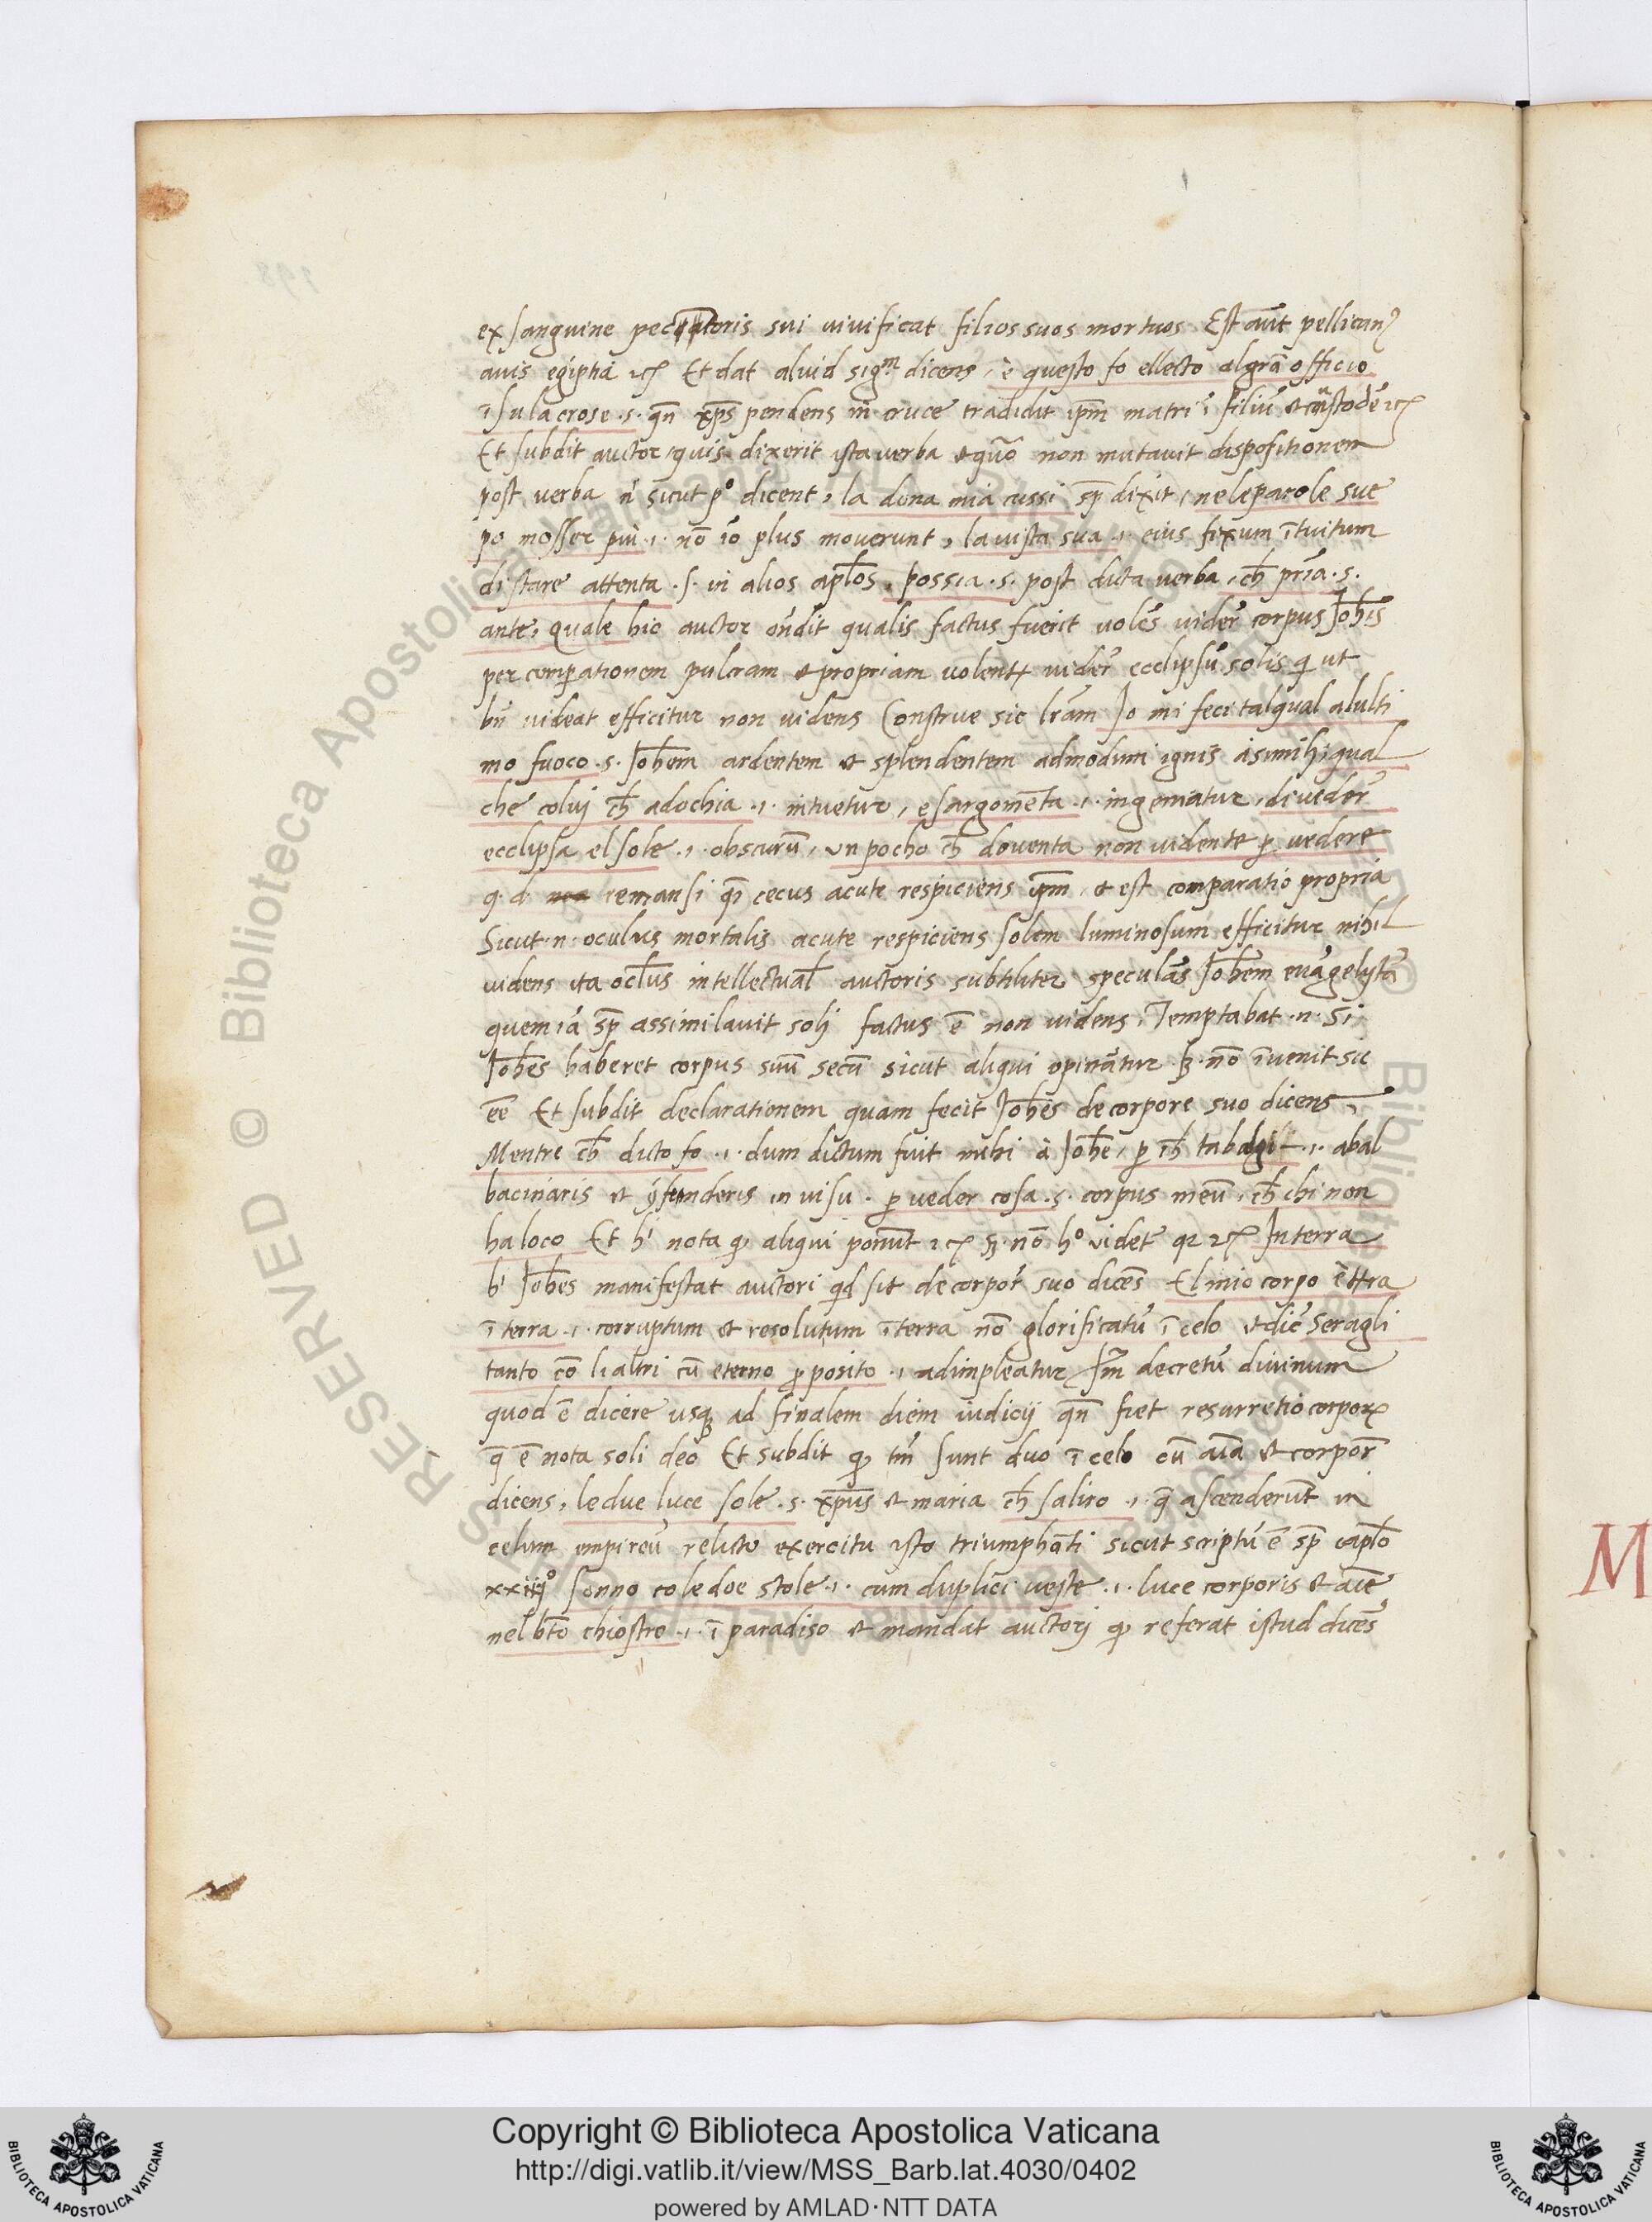 ex sanguine pectoris sui vivificat filios suos mortuos Est aut̃ pellicanꝰ
avis egiptia ⁊c̃ Et dat aliud sigᵐ dicens, è questo fo ellecto al grã officio
ĩ su la crose .s. qñ xp̃s pendens in cruce tradidit ip̃m matri ĩ filiũ & custodẽ ⁊c̃
Et subdit auctor quis dixerit ista verba & quõ non mutavit dispositionem
post verba ñ sicut pº dicent, la dona mia cussi sp̃ dixit, ne le parole sue
po mosser piu .i. nõ ĩo plus moverunt, la vista sua .i. eius fixum ĩtuitum
di stare attenta .s. in alios apl̃os, possia .s. post dicta verba, ch̃ pria .s.
ante, Quale hic auctor oñdit qualis factus fuerit volẽs vider̃ corpus Joh̃is
per comp̃ationem pulcram & propriam volentꝭ vider̃ ecclipsũ solis q̃ ut
bñ videat efficitur non videns Construe sic lr̃am Jo mi feci tal qual alulti
mo fuoco .s. Joh̃em ardentem & splendentem admodum ignis asimihi qual
che colui ch̃ adochia .i. intuetur, e sargomẽta .i. ingeniatur, di veder̃
ecclipsa el sole .i. obscurũ, un pocho ch̃ doventa non vidente p̱ vedere
q. d. non remansi q̃i cecus acute respiciens ip̃m, & est comparatio propria
Sicut .n. oculus mortalis acute respiciens solem luminosum efficitur nihil
videns ita ocl̃us intellectual̃ auctoris subtiliter speculãs Joh̃em evãgelistã
quem iã sp̃ assimilavit soli factus ẽ non videns, Temptabat .n. Si
Joh̃es haberet corpus suũ secũ sicut aliqui opinãtur Sꝫ nõ ĩvenit sic
eẽ Et subdit declarationem quam fecit Joh̃es de corpore suo dicens,
Mentre ch̃ dicto fo .i. dum dictum fuit mihi à Joh̃e, p̱ ch̃ tabagli .i. abal
bacinaris & ꝯfunderis in visu. p̱ veder cosa .s. corpus meũ, ch̃ chi non
ha loco Et h' nota qꝫ aliqui ponũt ⁊c̃ Sꝫ nõ hº videt̃ qꝫ ⁊c̃ In terra
h' Joh̃es manifestat auctori qd̃ sit de corpor̃ suo dicẽs El mio corpo è ttra
ĩ terra .i. corruptum & resolutum ĩ terra nõ glorificatũ ĩ celo & dic̃ Seragli
tanto cõ li altri cũ eterno p̱posito .i. adimpleatur Jm̃ decretũ divinum
quod ẽ dicere usqꝫ ad finalem diem iudicij qñ fiet resurretio corporꝝ
q̃ ẽ nota soli deo Et subdit qꝫ tm̃ sunt duo ĩ celo cũ aĩa & corpor̃
dicens, le due luce sole .s. xp̃us & maria ch̃ saliro .i. q̃ ascenderũt in
celum empireũ relicto exercitu isto triumphãti sicut scriptũ ẽ sp̃ capl̃o
xxiijº sonno cole doe stole .i. cum duplici veste .i. luce corporis & aĩe
nel btõ chiostro .i. ĩ paradiso & mandat auctori qꝫ referat istud dicẽs
M
Copyright © Biblioteca Apostolica Vaticana
http://digi.vatlib.it/view/MSS_Barb.lat.4030/0402
powered by AMLAD·NTT DATA
BIBLIOTECA APOSTOLICA VATICANA
BIBLIOTECA APOSTOLICA VATICANA